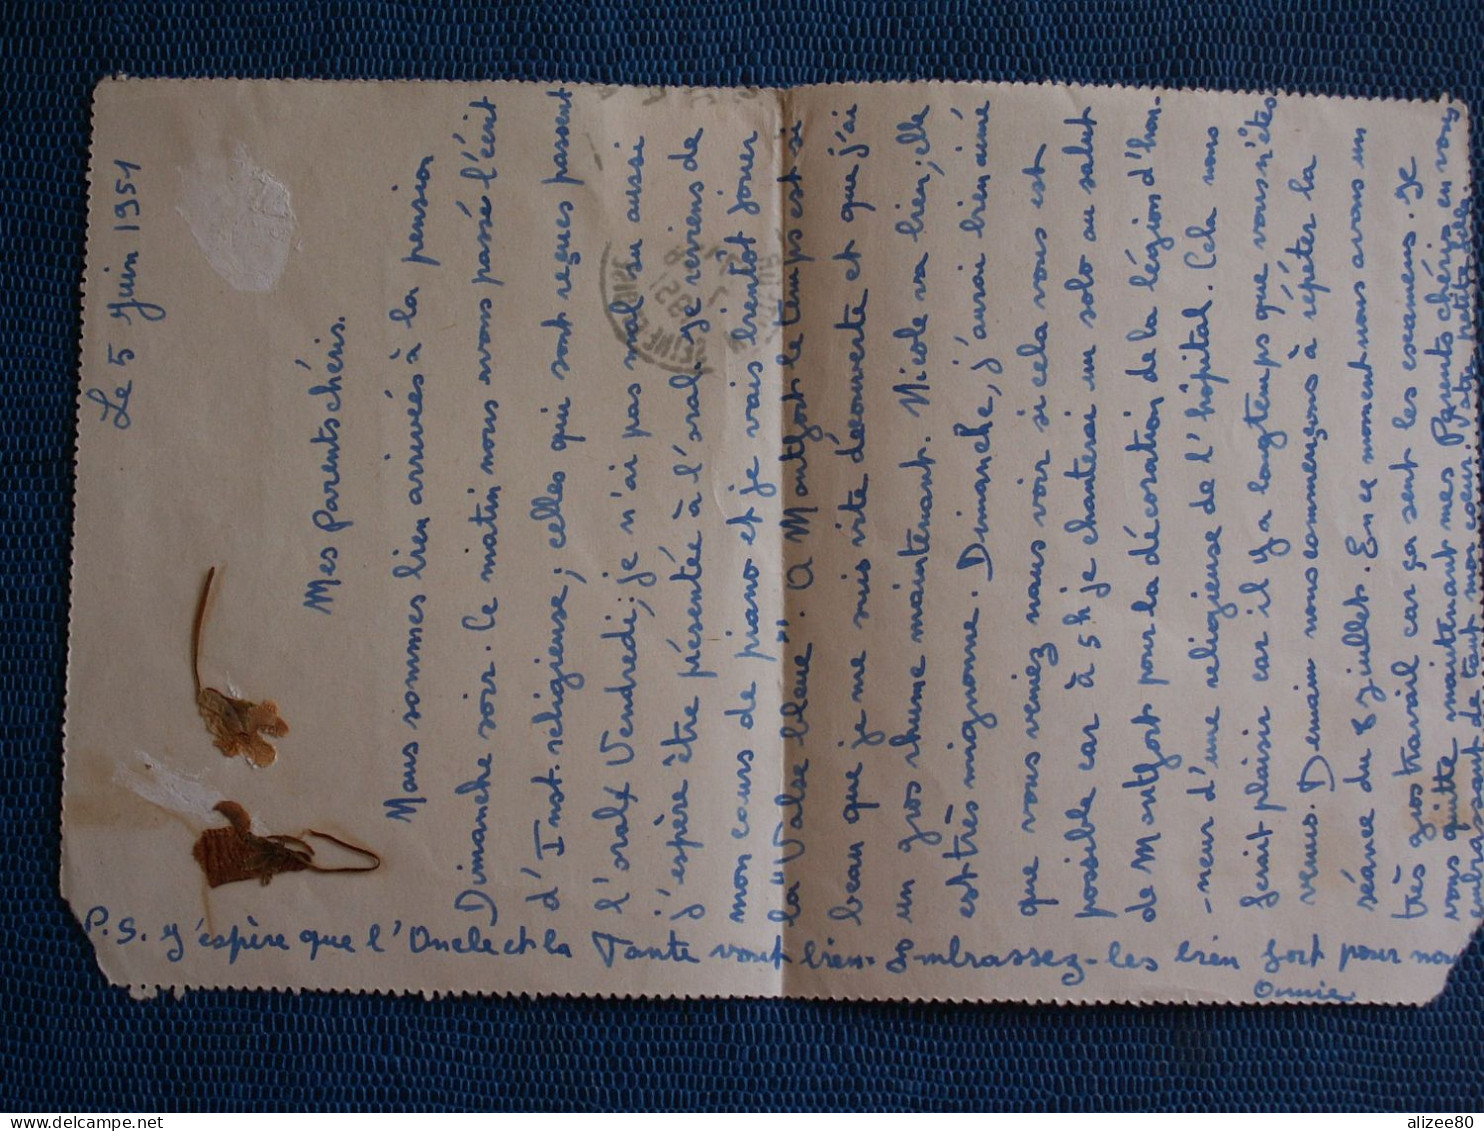 Le 5 Juin 1951
Mes Parents chéris.
Nous sommes bien arrivées à la pension
Dimanche soir. Ce matin nous avons passé l'écrit
d'Inst. religieuse ; celles qui sont reçues passent
l'oral Vendredi ; je n'ai pas mal su aussi
j'espère être présentée à l'oral. Je reviens de
mon cours de piano et je vais bientôt jouer
la "Valse bleue". A Montfort le temps est si
beau que je me suis vite découverte et que j'ai
un gros rhume maintenant. Nicole va bien ; elle
est très mignonne. Dimanche, j'aurai bien aimé
que vous veniez nous voir si cela vous est
possible car à 5h je chanterai un solo au salut
de Montfort pour la décoration de la légion d'hon-
-neur d'une religieuse de l'hôpital. Cela nous
ferait plaisir car il y a longtemps que vous n'êtes
venus. Demain nous commençons à répéter la
séance du 8 juillet. En ce moment nous avons un
très gros travail car ça sent les examens. Je
vous quitte maintenant mes Parents chéris en vous
de tout mon coeur. Votre petite
P.S. J'espère que l'Oncle et la Tante vont bien. Embrassez-les bien fort pour nous
SEINE
1951
alizee80